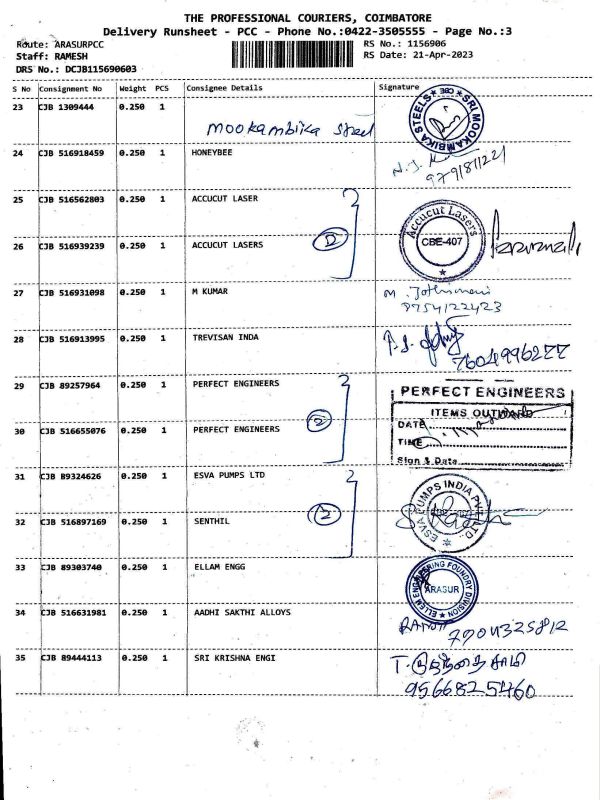 THE PROFESSIONAL COURIERS, COIMBATORE
Delivery Runsheet - PCC - Phone No.:0422-3505555 - Page No.:3
Route: ARASURPCC
RS No.: 1156906
Staff: RAMESH
RS Date: 21-Apr-2023
DRS No.: DCJB115690603
S No Consignment No Weight PCS Consignee Details Signature
23 CJB 1309444 0.250 1
Mookambika Steel
SRI MOOKAMBIKA STEELS CBE
24 CJB 516918459 0.250 1 HONEYBEE
9791811221
25 CJB 516562803 0.250 1 ACCUCUT LASER
Accucut Lasers
CBE-407
26 CJB 516939239 0.250 1 ACCUCUT LASERS
2
27 CJB 516931098 0.250 1 M KUMAR
M. Jothimani
9754122423
28 CJB 516913995 0.250 1 TREVISAN INDA
7604996277
29 CJB 89257964 0.250 1 PERFECT ENGINEERS
2
PERFECT ENGINEERS
ITEMS OUTWARD
DATE
TIME
Sign & Date
30 CJB 516655076 0.250 1 PERFECT ENGINEERS
31 CJB 89324626 0.250 1 ESVA PUMPS LTD
2
ESVA PUMPS INDIA PVT. LTD.
32 CJB 516897169 0.250 1 SENTHIL
33 CJB 89303740 0.250 1 ELLAM ENGG
ELLEM ENGINEERING FOUNDRY DIVISION
ARASUR
34 CJB 516631981 0.250 1 AADHI SAKTHI ALLOYS
35 CJB 89444113 0.250 1 SRI KRISHNA ENGI
9566825460